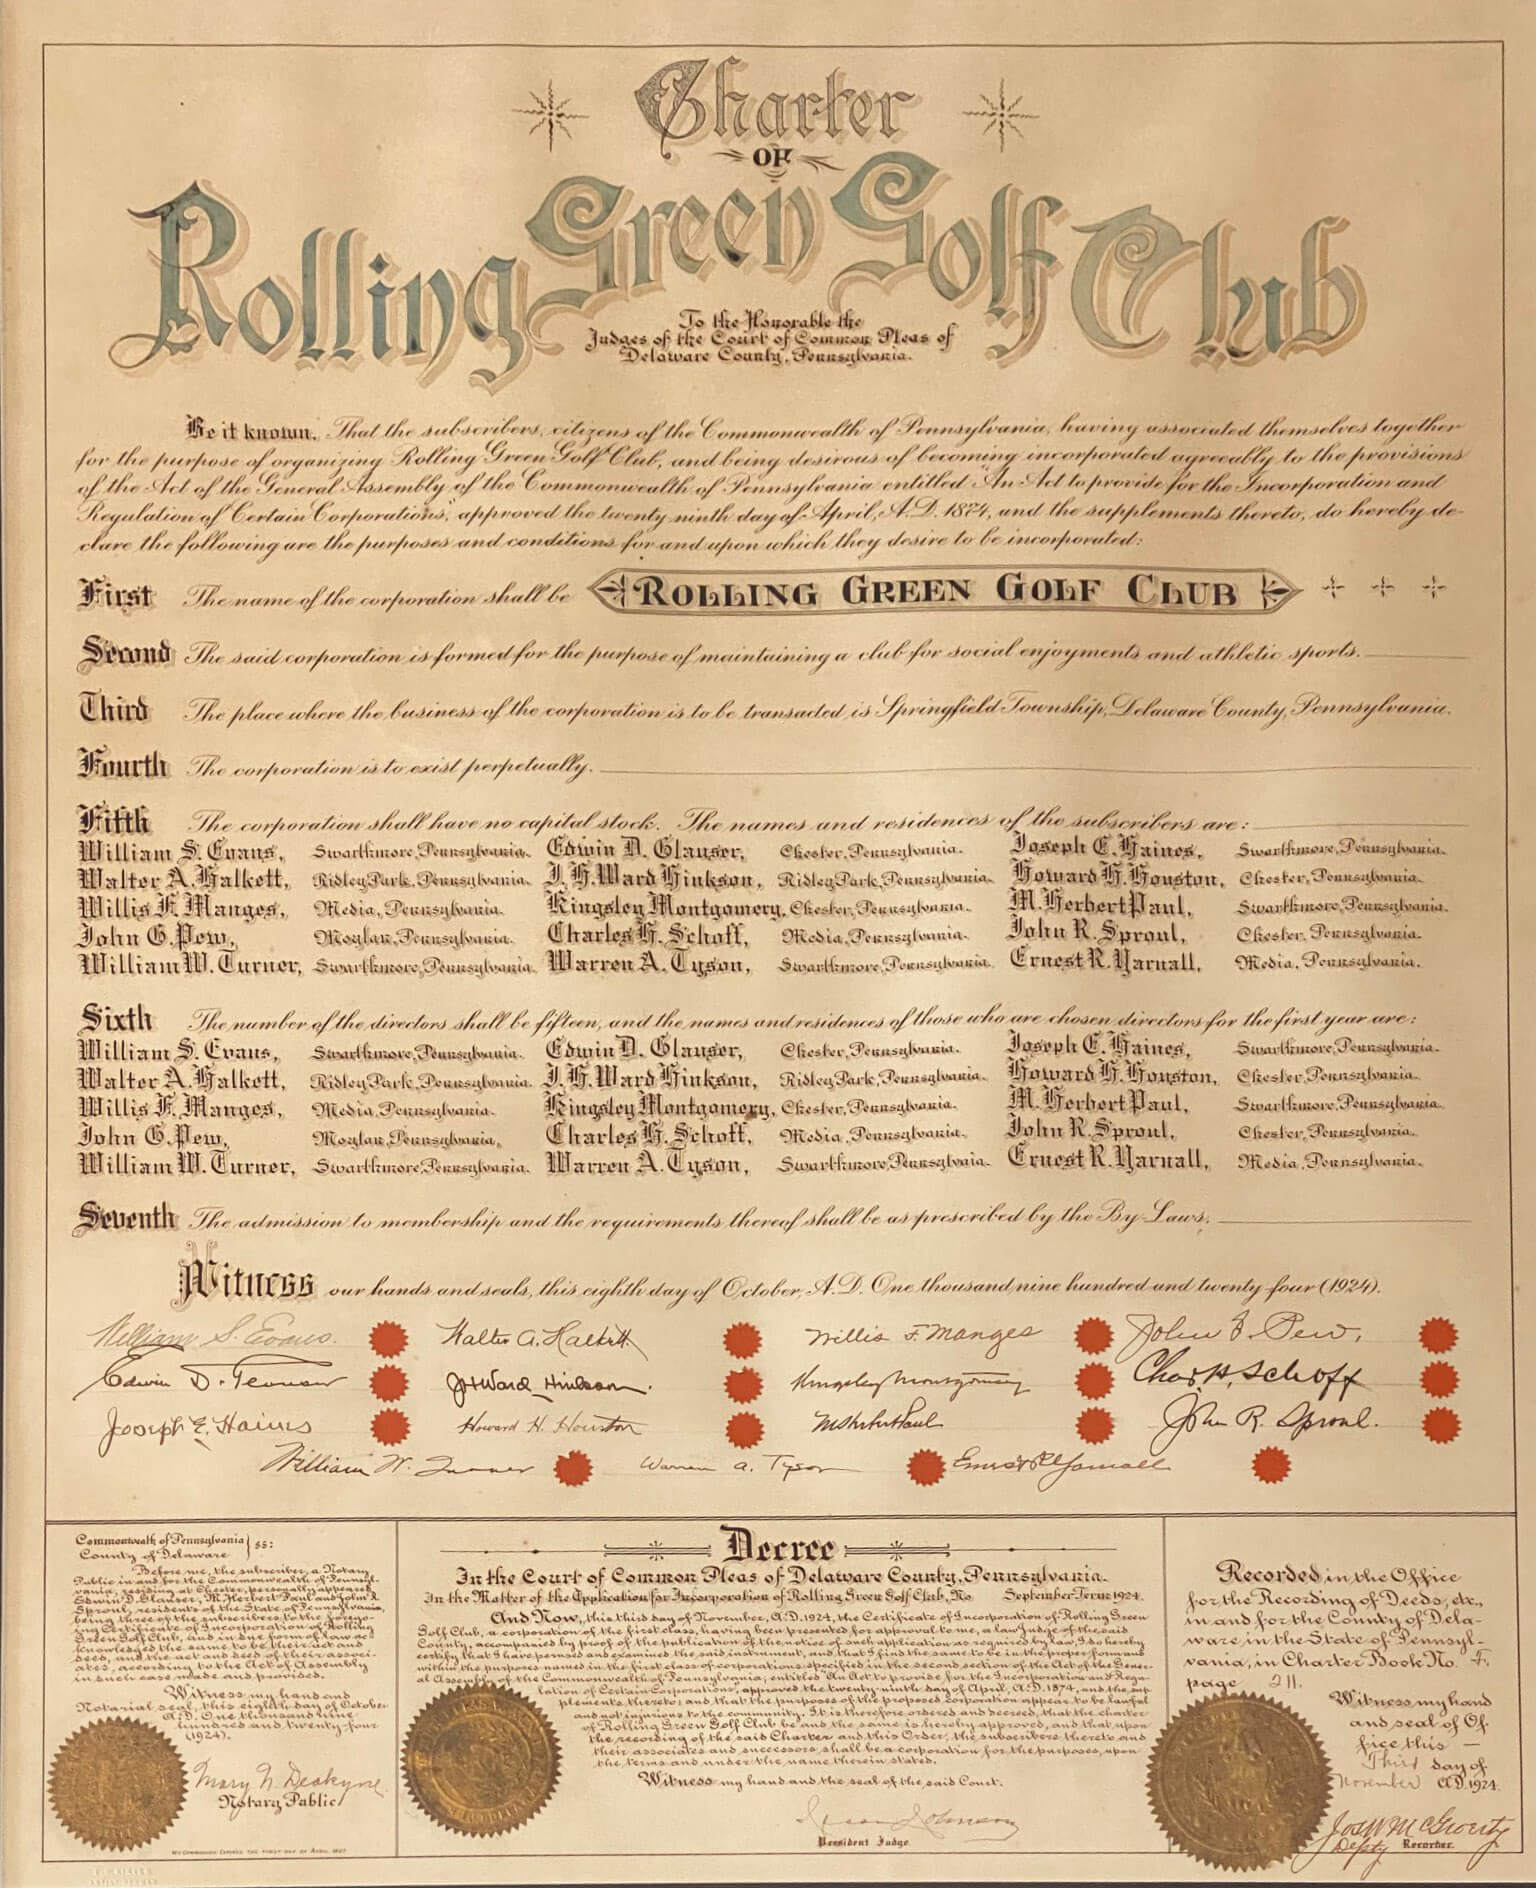 Charter
OF
Rolling Green Golf Club
To the Honorable the
Judges of the Court of Common Pleas of
Delaware County, Pennsylvania.
Be it known, That the subscribers, citizens of the Commonwealth of Pennsylvania, having associated themselves together
for the purpose of organizing Rolling Green Golf Club, and being desirous of becoming incorporated agreeably to the provisions
of the Act of the General Assembly of the Commonwealth of Pennsylvania entitled "An Act to provide for the Incorporation and
Regulation of Certain Corporations", approved the twenty ninth day of April, A.D. 1874, and the supplements thereto, do hereby de-
clare the following are the purposes and conditions for and upon which they desire to be incorporated:
First The name of the corporation shall be ROLLING GREEN GOLF CLUB
Second The said corporation is formed for the purpose of maintaining a club for social enjoyments and athletic sports.
Third The place where the business of the corporation is to be transacted is Springfield Township, Delaware County, Pennsylvania.
Fourth The corporation is to exist perpetually.
Fifth The corporation shall have no capital stock. The names and residences of the subscribers are:
William S. Evans, Swarthmore, Pennsylvania. Edwin D. Glauser, Chester, Pennsylvania. Joseph E. Haines, Swarthmore, Pennsylvania.
Walter A. Halkett, Ridley Park, Pennsylvania. J. H. Ward Hinkson, Ridley Park, Pennsylvania. Howard H. Houston, Chester, Pennsylvania.
Willis F. Manges, Media, Pennsylvania. Kingsley Montgomery, Chester, Pennsylvania. M. Herbert Paul, Swarthmore, Pennsylvania.
John G. Pew, Moylan, Pennsylvania. Charles H. Schoff, Media, Pennsylvania. John R. Sproul, Chester, Pennsylvania.
William W. Turner, Swarthmore, Pennsylvania. Warren A. Tyson, Swarthmore, Pennsylvania. Ernest R. Yarnall, Media, Pennsylvania.
Sixth The number of the directors shall be fifteen, and the names and residences of those who are chosen directors for the first year are:
William S. Evans, Swarthmore, Pennsylvania. Edwin D. Glauser, Chester, Pennsylvania. Joseph E. Haines, Swarthmore, Pennsylvania.
Walter A. Halkett, Ridley Park, Pennsylvania. J. H. Ward Hinkson, Ridley Park, Pennsylvania. Howard H. Houston, Chester, Pennsylvania.
Willis F. Manges, Media, Pennsylvania. Kingsley Montgomery, Chester, Pennsylvania. M. Herbert Paul, Swarthmore, Pennsylvania.
John G. Pew, Moylan, Pennsylvania. Charles H. Schoff, Media, Pennsylvania. John R. Sproul, Chester, Pennsylvania.
William W. Turner, Swarthmore, Pennsylvania. Warren A. Tyson, Swarthmore, Pennsylvaia. Ernest R. Yarnall, Media, Pennsylvania.
Seventh The admission to membership and the requirements thereof shall be as prescribed by the By-Laws.
Witness our hands and seals, this eighth day of October, A.D. One thousand nine hundred and twenty-four (1924).
William S. Evans. Walter A. Halkett. Willis F. Manges John G. Pew.
Edwin D. Glauser JHWard Hinkson. Kingsley Montgomery Chas. H. Schoff
Joseph E. Haines Howard H. Houston M Herbert Paul John R. Sproul.
William W. Turner Warren A. Tyson Ernest R Yarnall
Commonwealth of Pennsylvania
County of Delaware ss:
Before me, the subscriber, a Notary
Public in and for the Commonwealth of Pennsyl-
vania, residing at Chester, personally appeared
Edwin D. Glauser, M. Herbert Paul and John R.
Sproul, residents of the State of Pennsylvania,
being three of the subscribers to the forego-
ing Certificate of Incorporation of Rolling
Green Golf Club, and in due form of law ac-
knowledged the same to be their act and
deed, and the act and deed of their associ-
ates, according to the Act of Assembly
in such case made and provided.
Witness my hand and
Notarial seal, this eighth day of October
A.D. One thousand nine
hundred and twenty-four
(1924).
Mary N. Deakyne
Notary Public
MY COMMISSION EXPIRES THE FIRST DAY OF APRIL 1927
Decree
In the Court of Common Pleas of Delaware County, Pennsylvania.
In the Matter of the Application for Incorporation of Rolling Green Golf Club, No. September Term 1924.
And Now, this third day of November, A.D. 1924, the Certificate of Incorporation of Rolling Green
Golf Club, a corporation of the first class, having been presented for approval to me, a law Judge of the said
County, accompanied by proof of the publication of the notice of such application as required by law, I do hereby
certify that I have perused and examined the said instrument, and that I find the same to be in the proper form and
within the purposes named in the first class of corporations specified in the second section of the Act of the Gener-
al Assembly of the Commonwealth of Pennsylvania, entitled "An Act to provide for the Incorporation and Regu-
lation of Certain Corporations", approved the twenty-ninth day of April, A.D. 1874, and the sup-
plements thereto; and that the purposes of the proposed corporation appear to be lawful
and not injurious to the community. It is therefore ordered and decreed, that the charter
of Rolling Green Golf Club be and the same is hereby approved, and that upon
the recording of the said Charter and this Order, the subscribers thereto and
their associates and successors shall be a corporation for the purposes, upon
the terms and under the name therein stated.
Witness my hand and the seal of the said Court.
Isaac Johnson
President Judge
Recorded in the Office
for the Recording of Deeds, etc.,
in and for the County of Dela-
ware, in the State of Pennsyl-
vania, in Charter Book No.
page 211.
Witness my hand
and seal of Of-
fice this
Third day of
November A.D. 1924.
Jos W McGrorty
Depty Recorder.